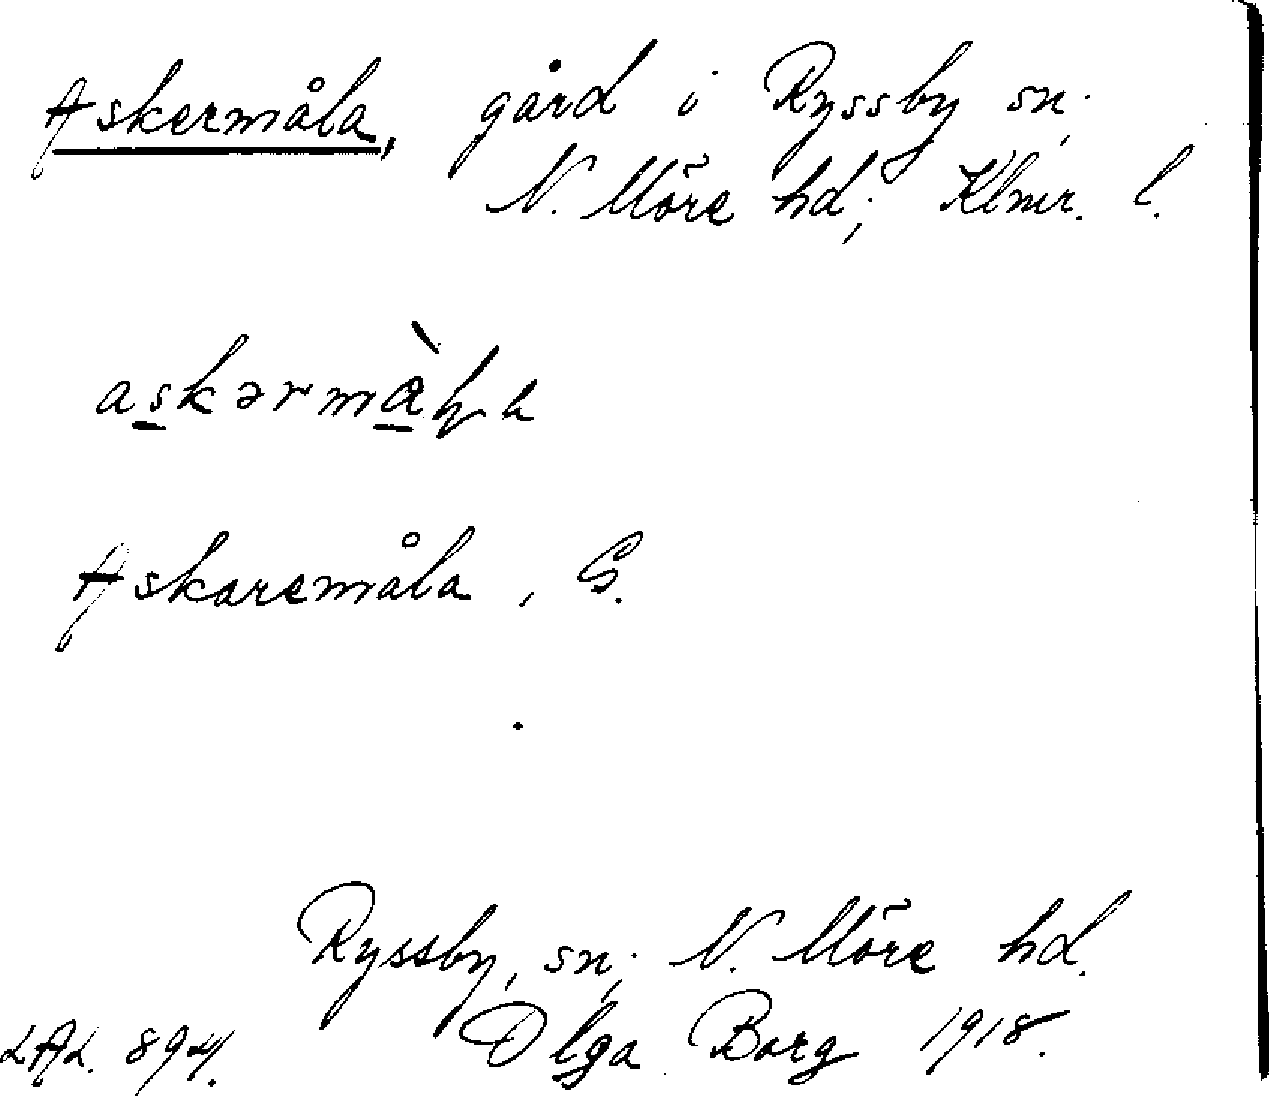 Askermåla, gård i Ryssby sn;
N. Möre hd; Klmr. l.
Askaremåla, G.
Ryssby, sn; N. Möre hd.
LAL. 894. Olga Borg 1918.